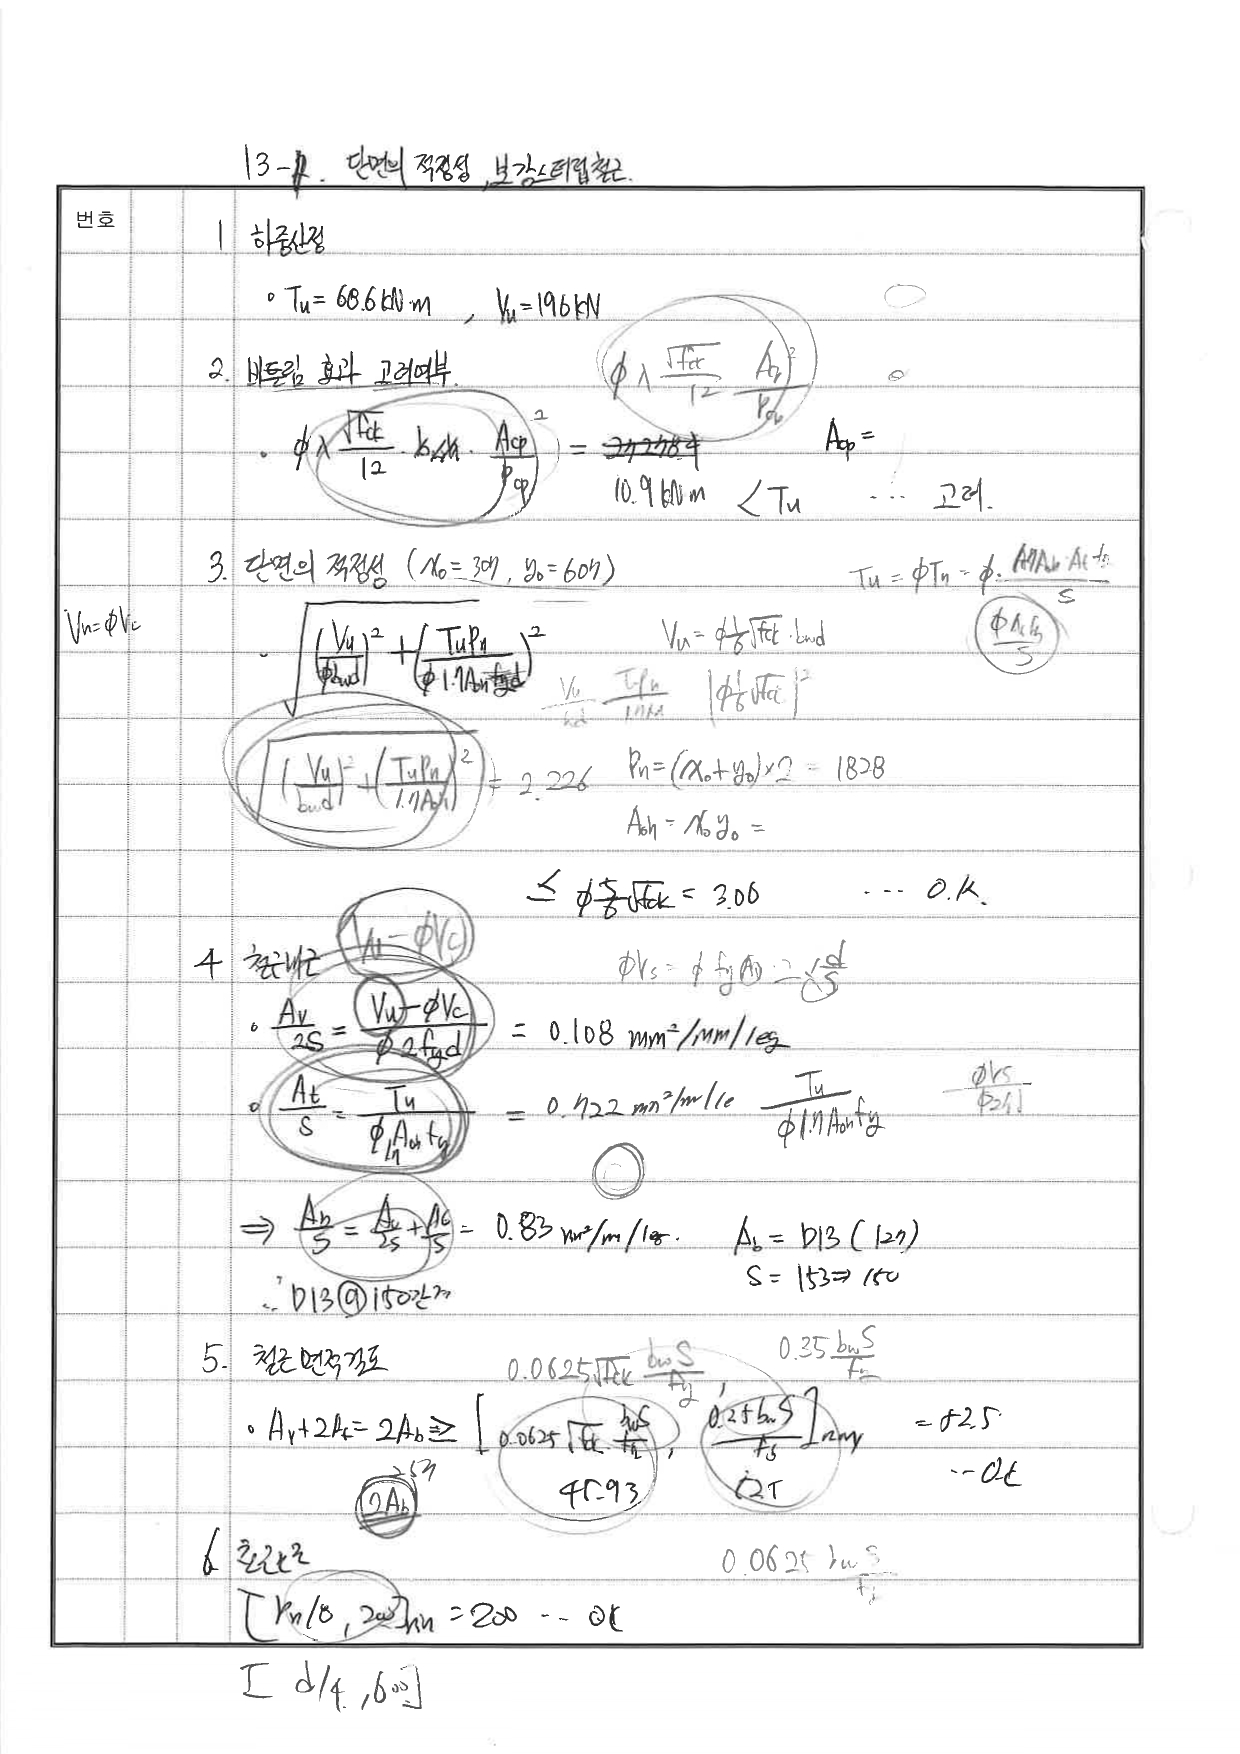 13-1. 단면의 적정성, 보강스터럽철근.
번호
1 하중산정
∘ Tu = 68.6 kN·m , Vu = 196 kN
φλ √fck/12 Acp²/Pcp
2. 비틀림 효과 고려여부.
∘ φλ √fck/12 · Acp²/Pcp = 10.9 kN·m < Tu ... 고려.
Acp =
3. 단면의 적정성 (x₀ = 307, y₀ = 607)
Tu = φTn = φ·
φAtfy/S
Vn = φVc
∘ √(Vu/φbwd)² + (TuPh/φ1.7Aoh)²
Vu = φ1/6√fck·bwd
Vu/bd TuPh/1.7A |φ1/6√fck|²
√(Vu/bwd)² + (TuPh/1.7Aoh)² = 2.226
Ph = (x₀+y₀)×2 = 1828
Aoh = x₀y₀ =
≤ φ5/6√fck = 3.06 ... O.K.
Vu-φVc
4 철근배근
φVs = φ fy Av 2 × d/S
∘ Av/2S = Vu-φVc/φ2fyd = 0.108 mm²/mm/leg
∘ At/S = Tu/φ1.7Aohfy = 0.722 mm²/m/le Tu/φ1.7Aohfy
⇒ Ab/S = Av/2S + At/S = 0.83 mm²/m/leg. Ab = D13 (127)
S = 153 ⇒ 150
∴ D13@150간격
5. 철근면적검토
0.0625√fck bwS/fy , 0.35 bwS/fy
∘ Av+2At = 2Ab ≥ [0.0625√fck·bwS/fy , 0.35bwS/fy]max = 52.5
... OK
2Ab
45.93 52.5
6 철근간격
0.0625 bwS/fy
[Ph/8, 300]min = 200 ... OK
[ d/4, 600]